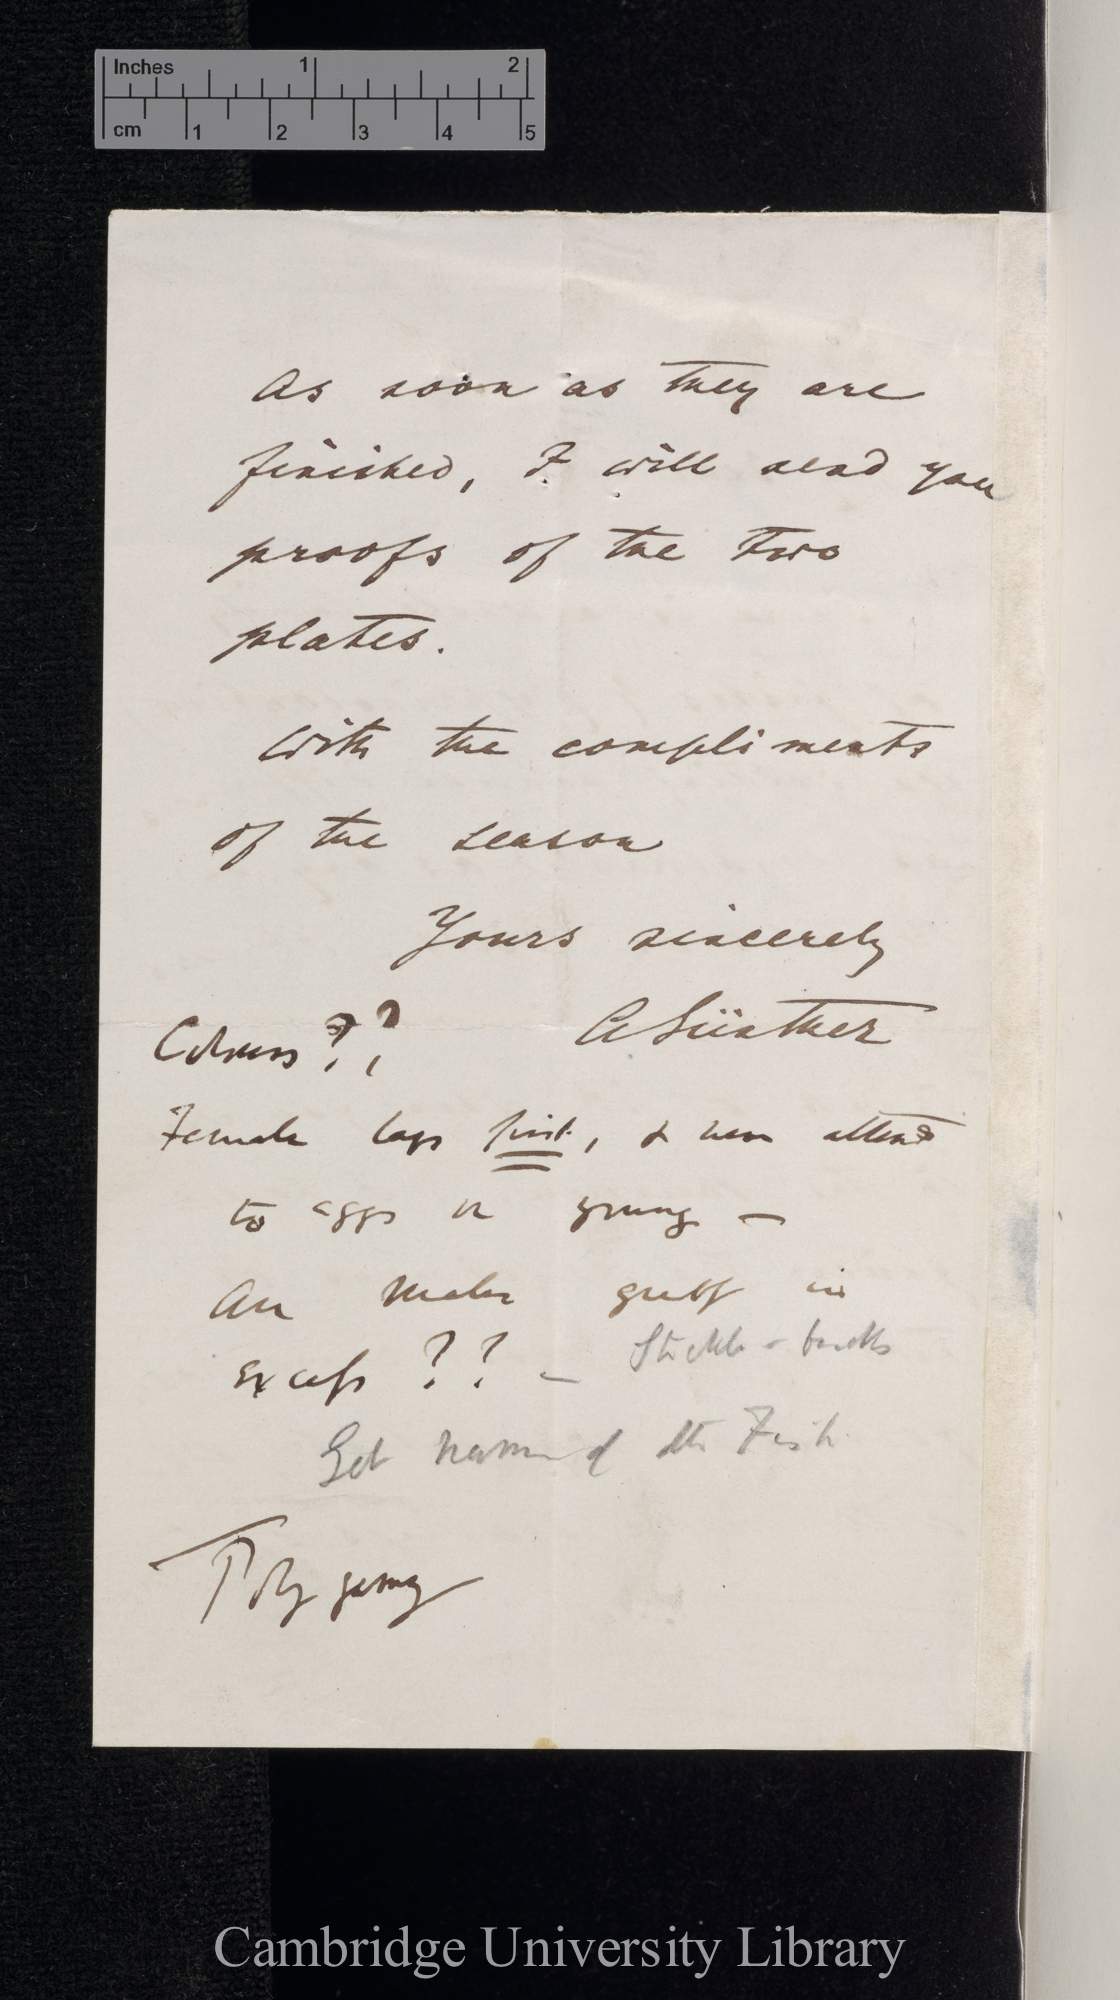 Inches 1 2
cm 1 2 3 4 5
As soon as they are
finished, I will send you
proofs of the two
plates.
With the compliments
of the season
Yours sincerely
A Günther
Colours ??
Female lays first, & then attend
to eggs or young —
Are males greatly in
excess ?? —
Stickle-backs
Get names of the Fish
Polygamy
Cambridge University Library